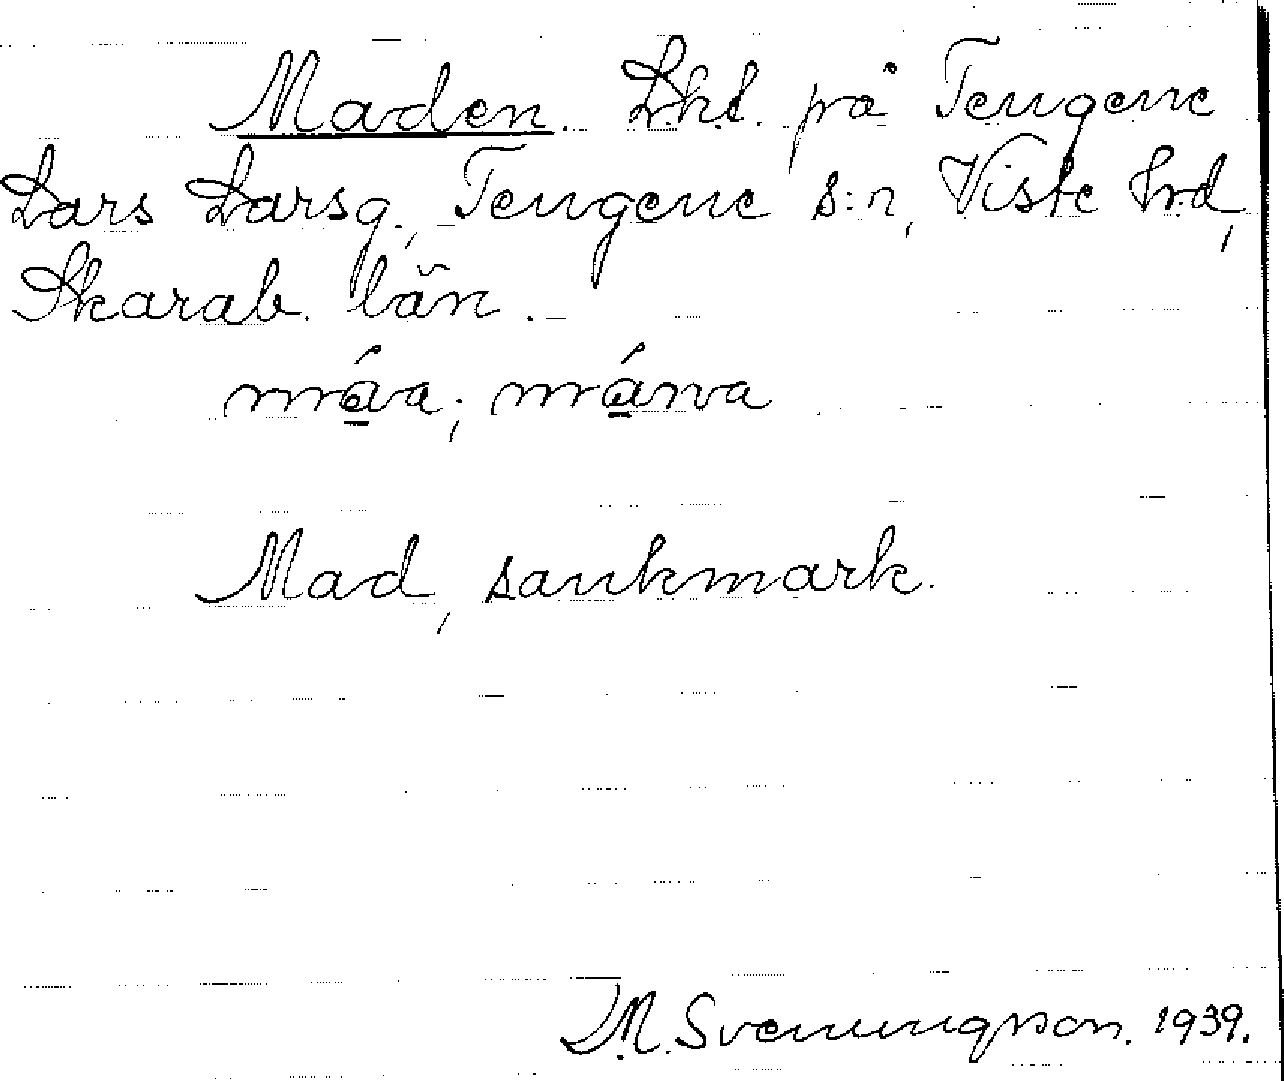 Maden. Lkl. på Tengene
Lars Larsg., Tengene s:n, Viste hrd,
Skarab. län.
máva; márva
Mad, sankmark.
M. Svenungson. 1939.